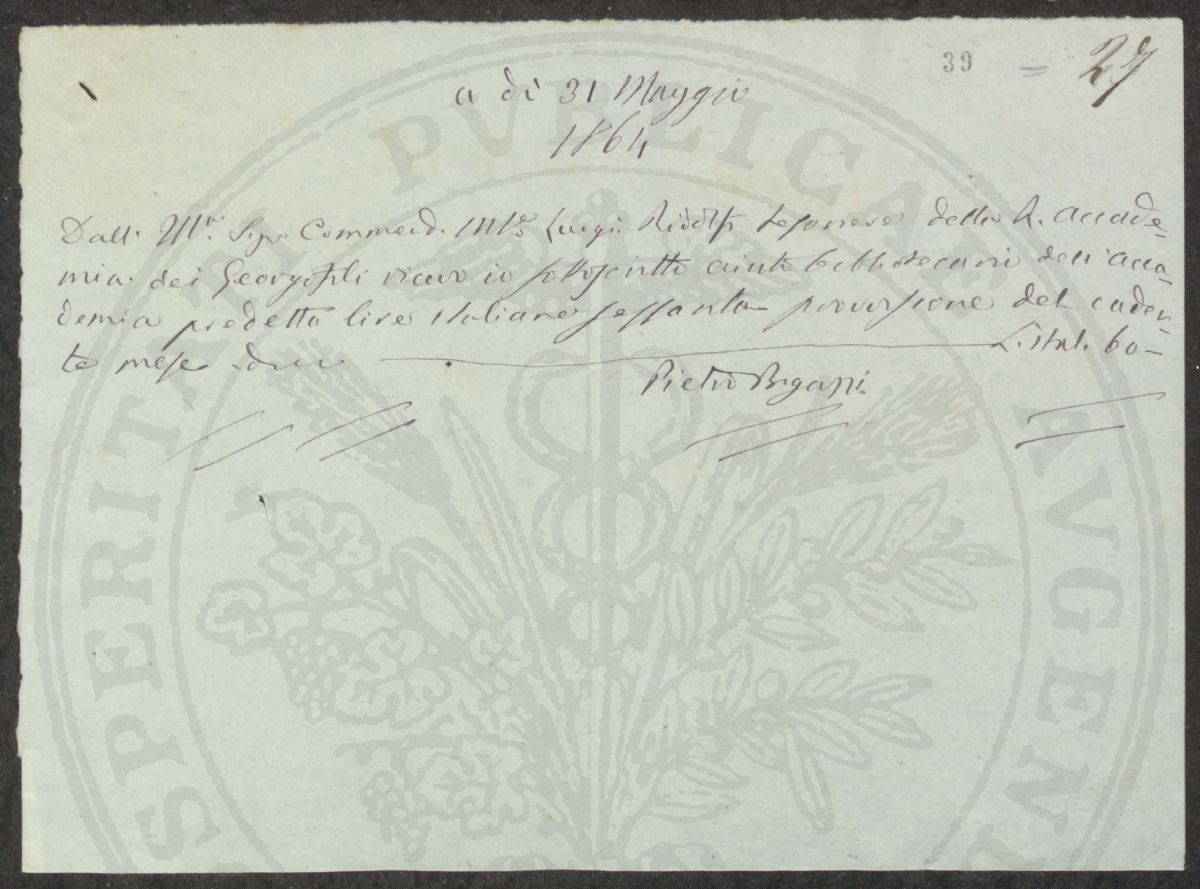 39 = 27
a dì 31 Maggio
1864
Dall' Ill.º Sig. Commend. M.se Luigi Ridolfi tesoriere della R. Accade-
mia dei Georgofili ricevo io sottoscritto aiuto bibliotecario dell'acca-
demia predetta lire italiane sessanta provvisione del caden-
te mese dico L. ital. 60-
Pietro Bigazzi
PROSPERITATI PVBLICAE AVGENDAE